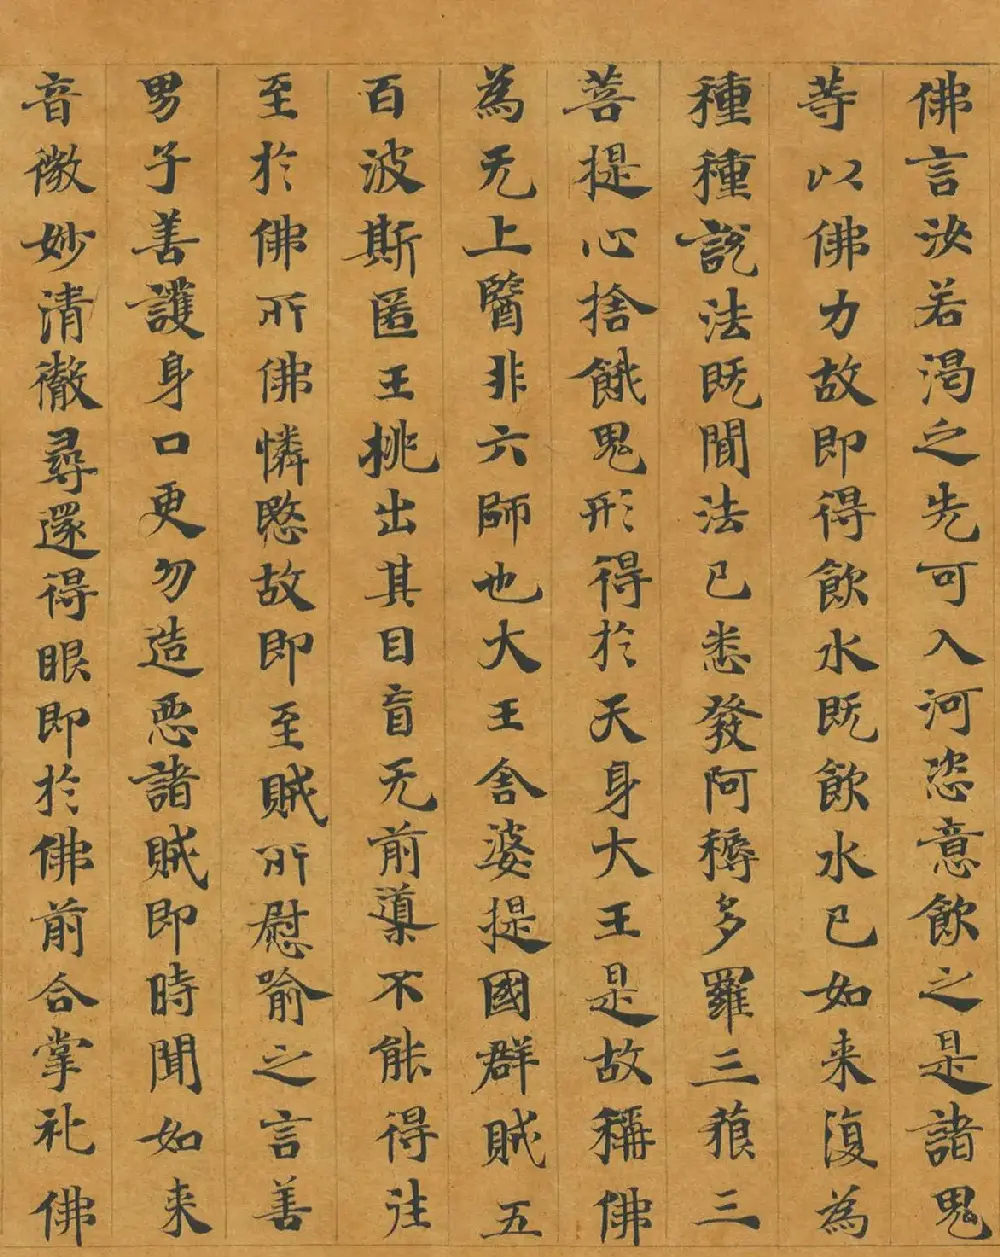 佛言汝若渴乏先可入河恣意飲之是諸鬼
等以佛力故即得飲水既飲水已如来復為
種種說法既聞法已悉發阿耨多羅三藐三
菩提心捨餓鬼形得於天身大王是故稱佛
為无上醫非六師也大王舍婆提國群賊五
百波斯匿王挑出其目盲无前導不能得往
至於佛所佛憐愍故即至賊所慰喻之言善
男子善護身口更勿造惡諸賊即時聞如来
音微妙清徹尋還得眼即於佛前合掌礼佛